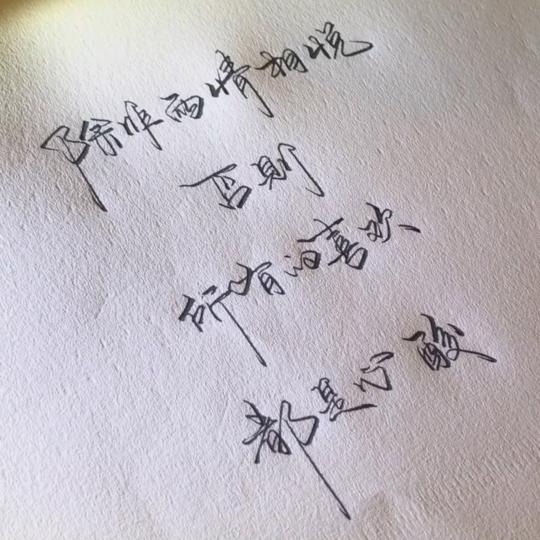 除非两情相悦
否则
所有的喜欢
都是心酸